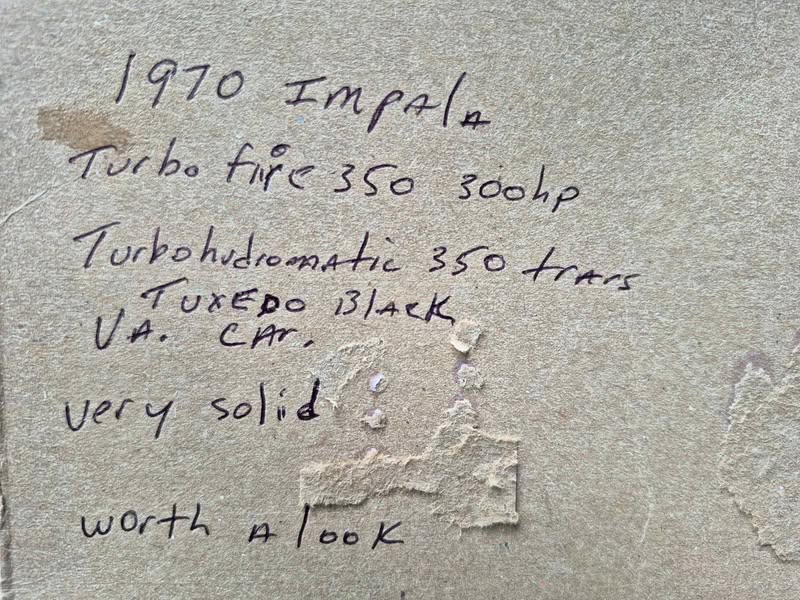 1970 Impala
Turbo fire 350 300hp
Turbohydromatic 350 trans
Tuxedo Black
VA. CAr.
very solid
worth A look